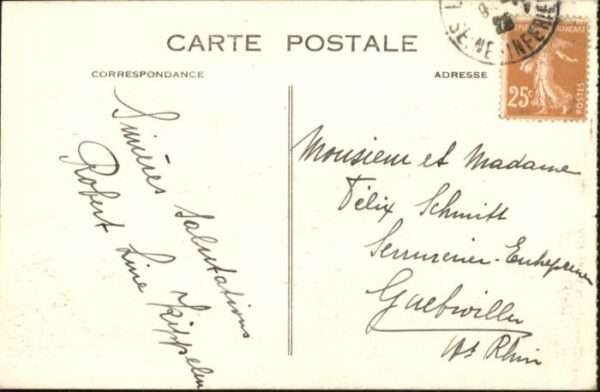 CARTE POSTALE
CORRESPONDANCE
ADRESSE
SEINE-INFERIE
FRANÇAISE
25c
POSTES
Sincères Salutations
Robert Line Kippelen
Monsieur et Madame
Félix Schmitt
Serrurier-Entrepreneur
Guebwiller
Ht Rhin